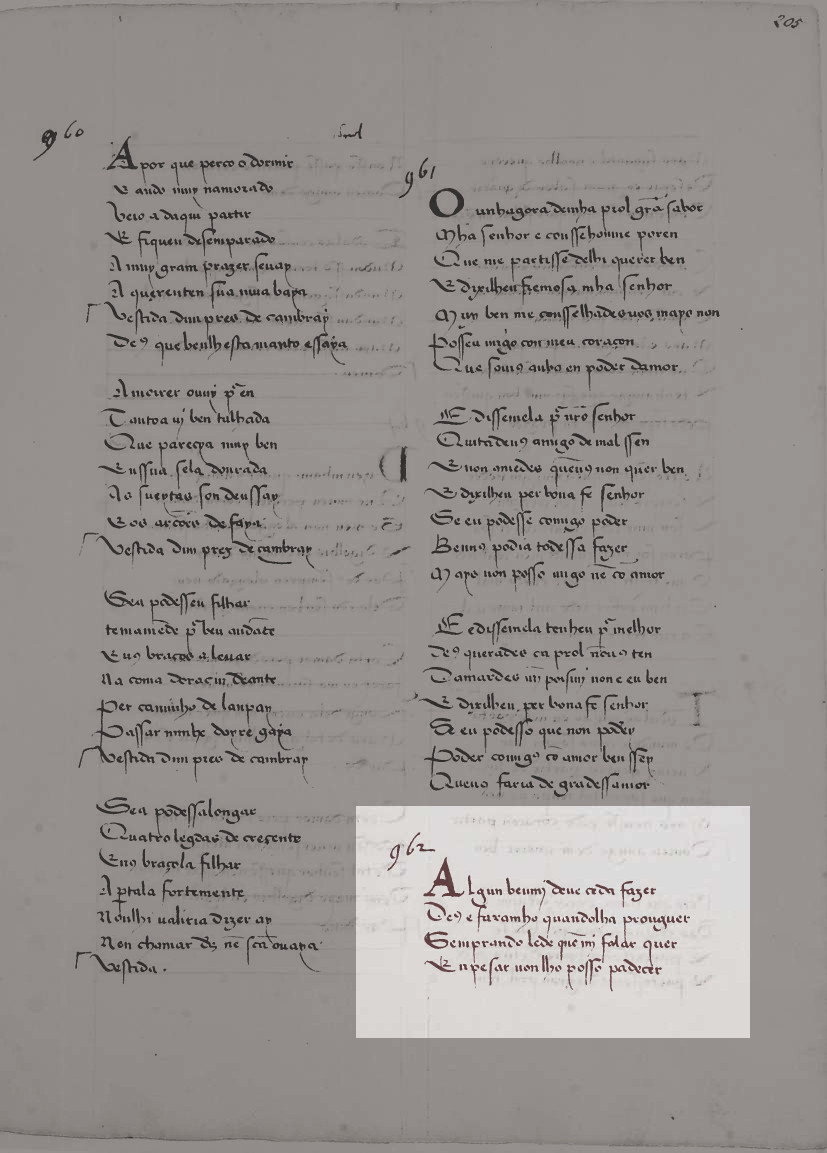 205
960
A por que perco o dormir
E ando muy namorado
Veio a daqui partir
E fiqueu desemparado
A muy gram prazer seuay
A querenten sua mua baya
Vestida dun pres de cambray
De9 que benlh esta manto essaya
A morrer ouuy pr en
Tantoa ui ben talhada
Que parecya muy ben
Enssua sela dourada
As sueytas son deussay
E os arções de faya
Vestida dun prez de cambray
Sea podesseu filhar
E us braços a leuar
Na coma doraçin deante
Per caminho de laupay
Passar minhe dorre gaya
Vestida dun pres de cambray
Sea podessalongar
Quatro legoas de creçente
E nus braçola filhar
A ptala fortemente
Noulhi ualiria dizer ay
Nen chamar ds nē sca ouaya
Vestida.
961
O unhagora demha prol grã sabor
Mha senhor e coussehoume poren
Que me partisse delhi querer ben
E dixilheu fremosa mha senhor
Muy ben me conselhades uos mays non
Posseu migo con meu coraçon
Que somus anbs en poder damor
E dissemela pr nro senhor
Quitadeus amigo de mal ssen
E non amedes queus non quer ben
E dixilheu per bona fe senhor
Se eu podesse comigo poder
Benus podia todessa fazer
Mays non posso migo nē cō amor
E edissemela tenheu pr melhor
De9 querades ca prol nō u9 ten
Damardes mi poismi non e eu ben
E dixilheu per bona fe senhor
Se eu podesso que non podey
Poder comigo cō amor benssey
Queus faria de gradessamor
962
A lgun benmj deue ceda fazer
De9 e faramho quandolha prouguer
Semprando lede quē mj falar quer
En pesar nonlho posso padecer